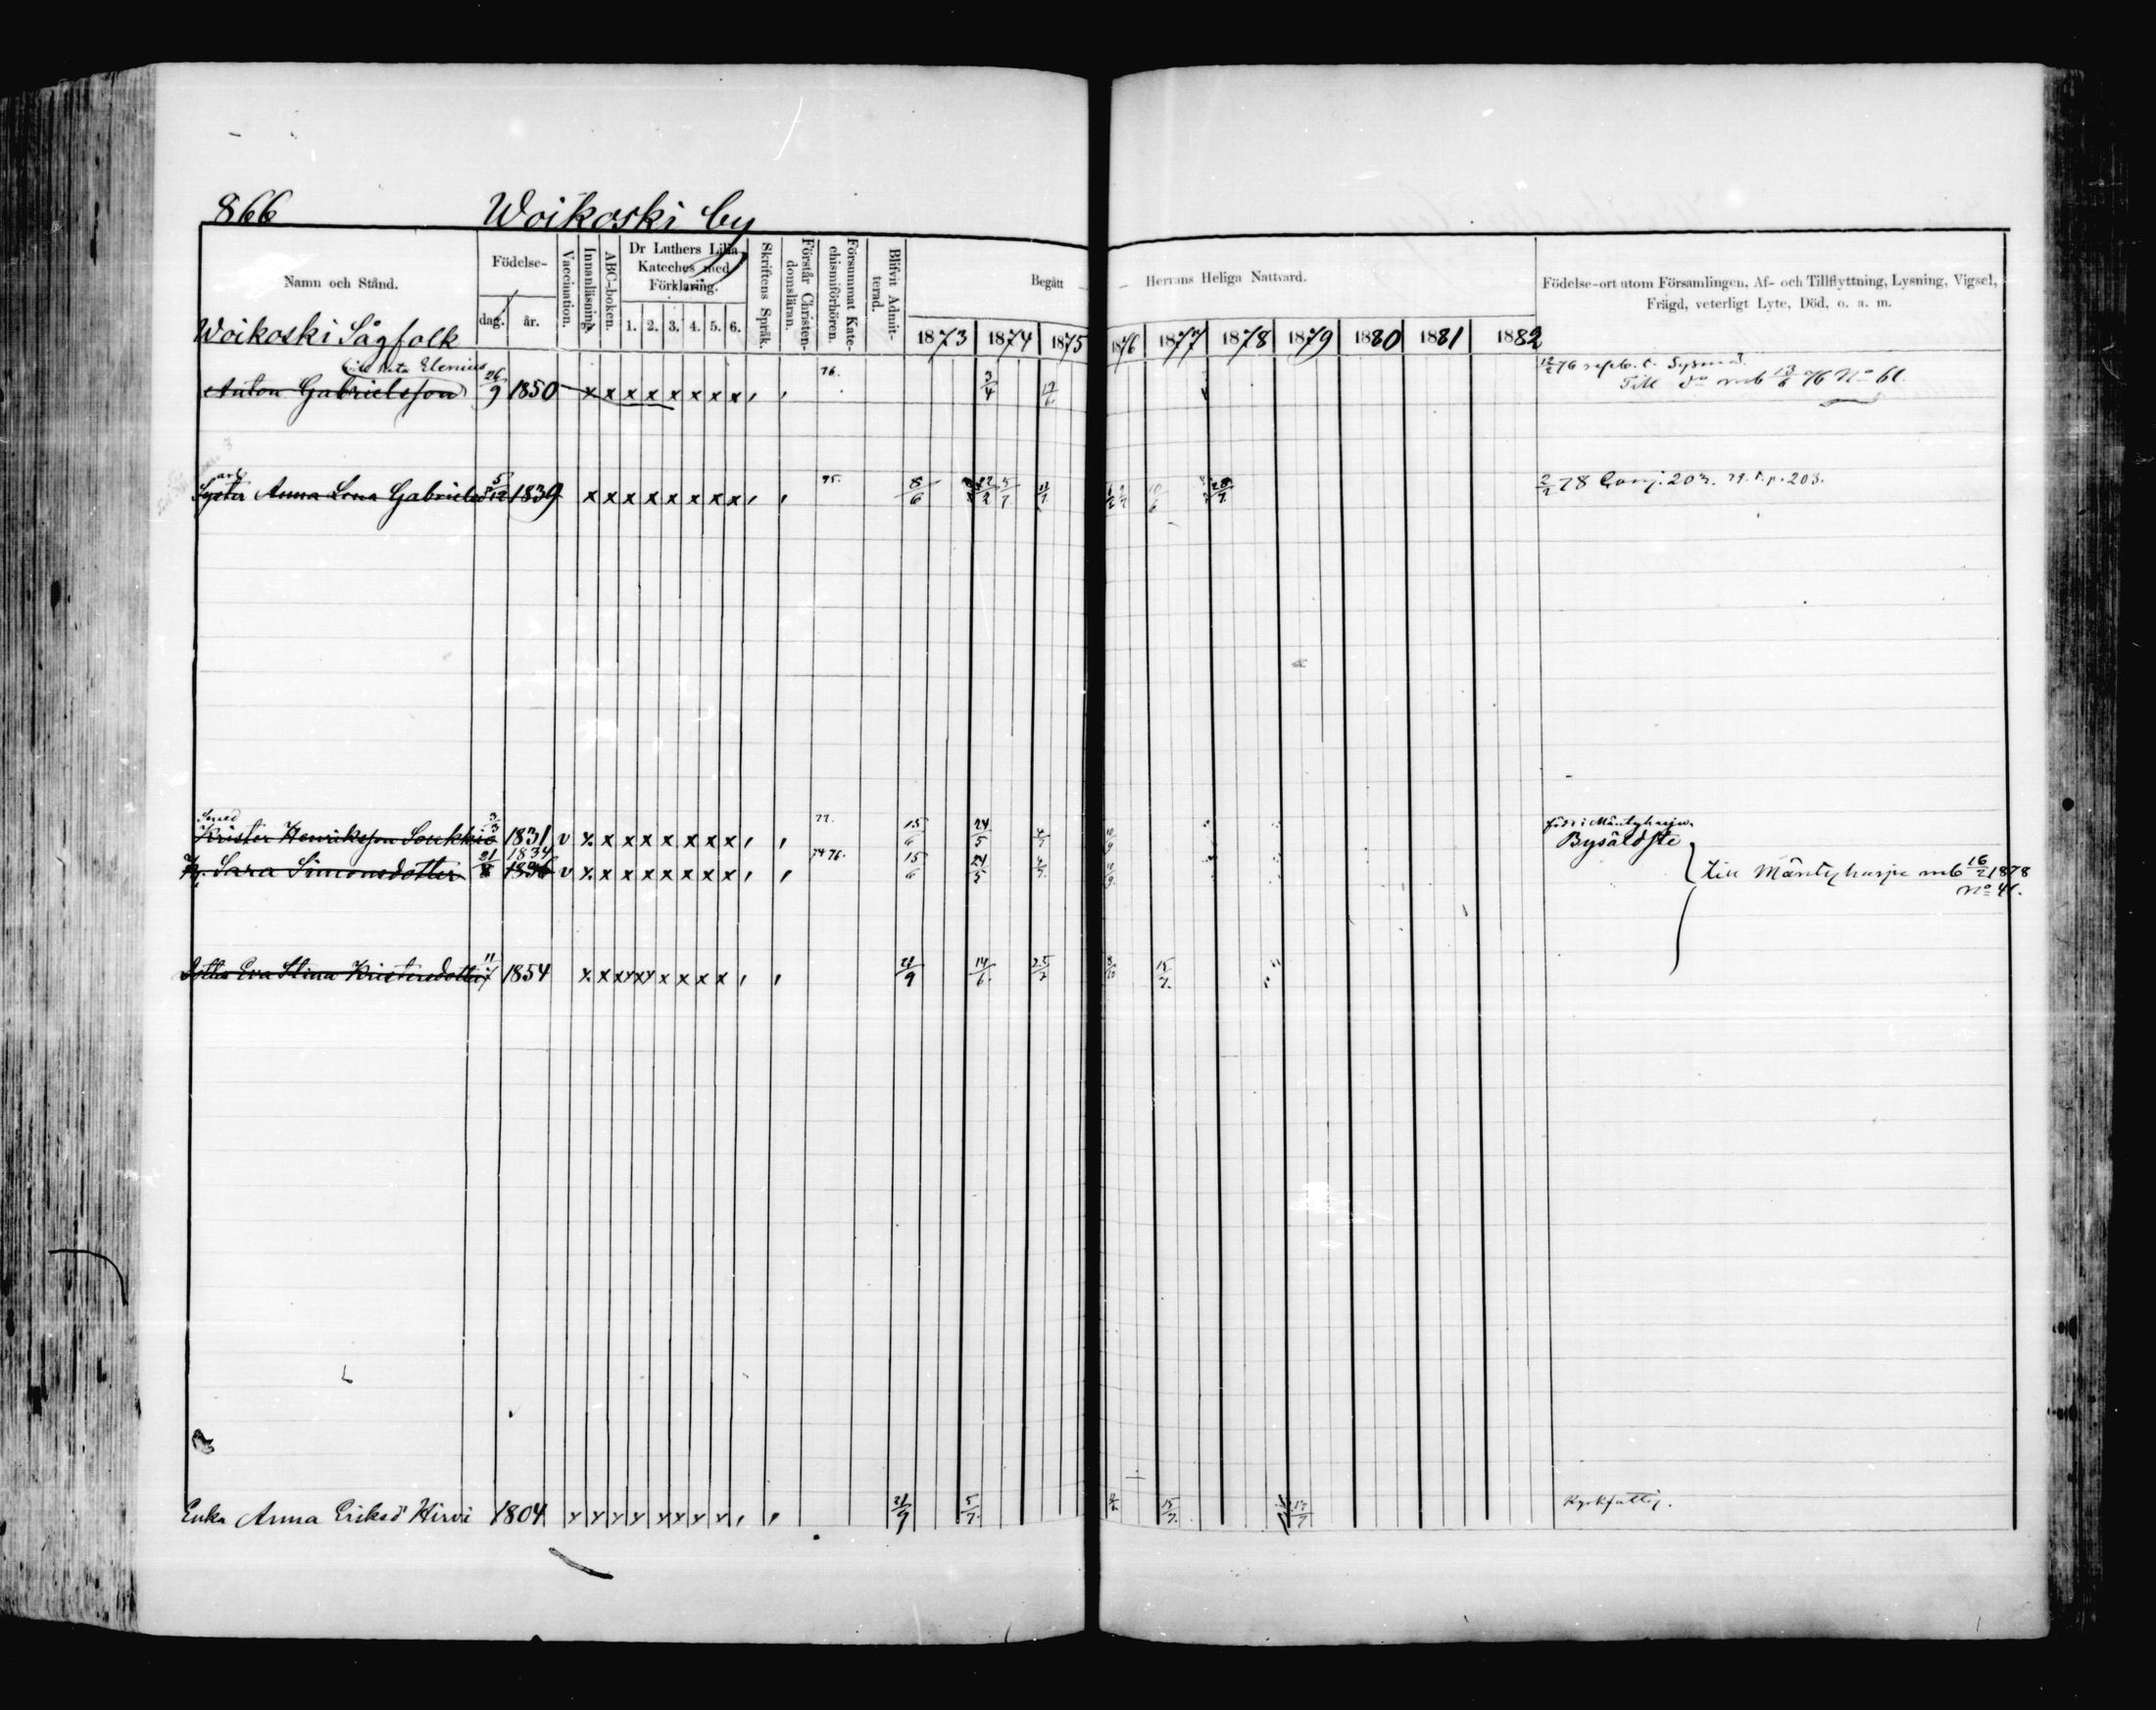 866 Woikoski by
Namn och Stånd. Födelse- dag. år. Vaccination. Innanläsning. ABC-boken. Dr Luthers Lilla Kateches med Förklaring. 1. 2. 3. 4. 5. 6. Skriftens Språk. Förstår Christendomsläran. Försummat Katechismiförhören. Blifvit Admitterad. Begått Herrans Heliga Nattvard. 1873 1874 1875 1876 1877 1878 1879 1880 1881 1882 Födelse-ort utom Församlingen, Af- och Tillflyttning, Lysning, Vigsel, Frägd, veterligt Lyte, Död, o. a. m.
Woikoski Sågfolk
Elenius
Anton Gabrielsson 26/9 1850 x x x x x x x x 76. 3/4
Till do mb 13/6 76 No 61.
Syster Anna Lena Gabrielsd 5/12 1839 x x x x x x x x 75. 8/6 22/2 5/7 2/2 78 Conj. 203. 79. T. p. 203.
Smed
Krister Henriksson Soukkio 3/3 1831 v x x x x x x x x 77. 15/6 24/5 född i Mäntyharju
Bysäldste
1834
Sara Simonsdotter 21/8 1836 v x x x x x x x x 74 76. 15/6 24/5 till Mäntyharju mb 16/2 1878
No 41.
Dotter Eva Stina Kristersdotter 11/7 1854 x x x x x x x x 21/9 14/6 25/7 15/7
Enka Anna Eriksd Hirvi 1804 21/9 5/7 15/7 Kyrkfattig.